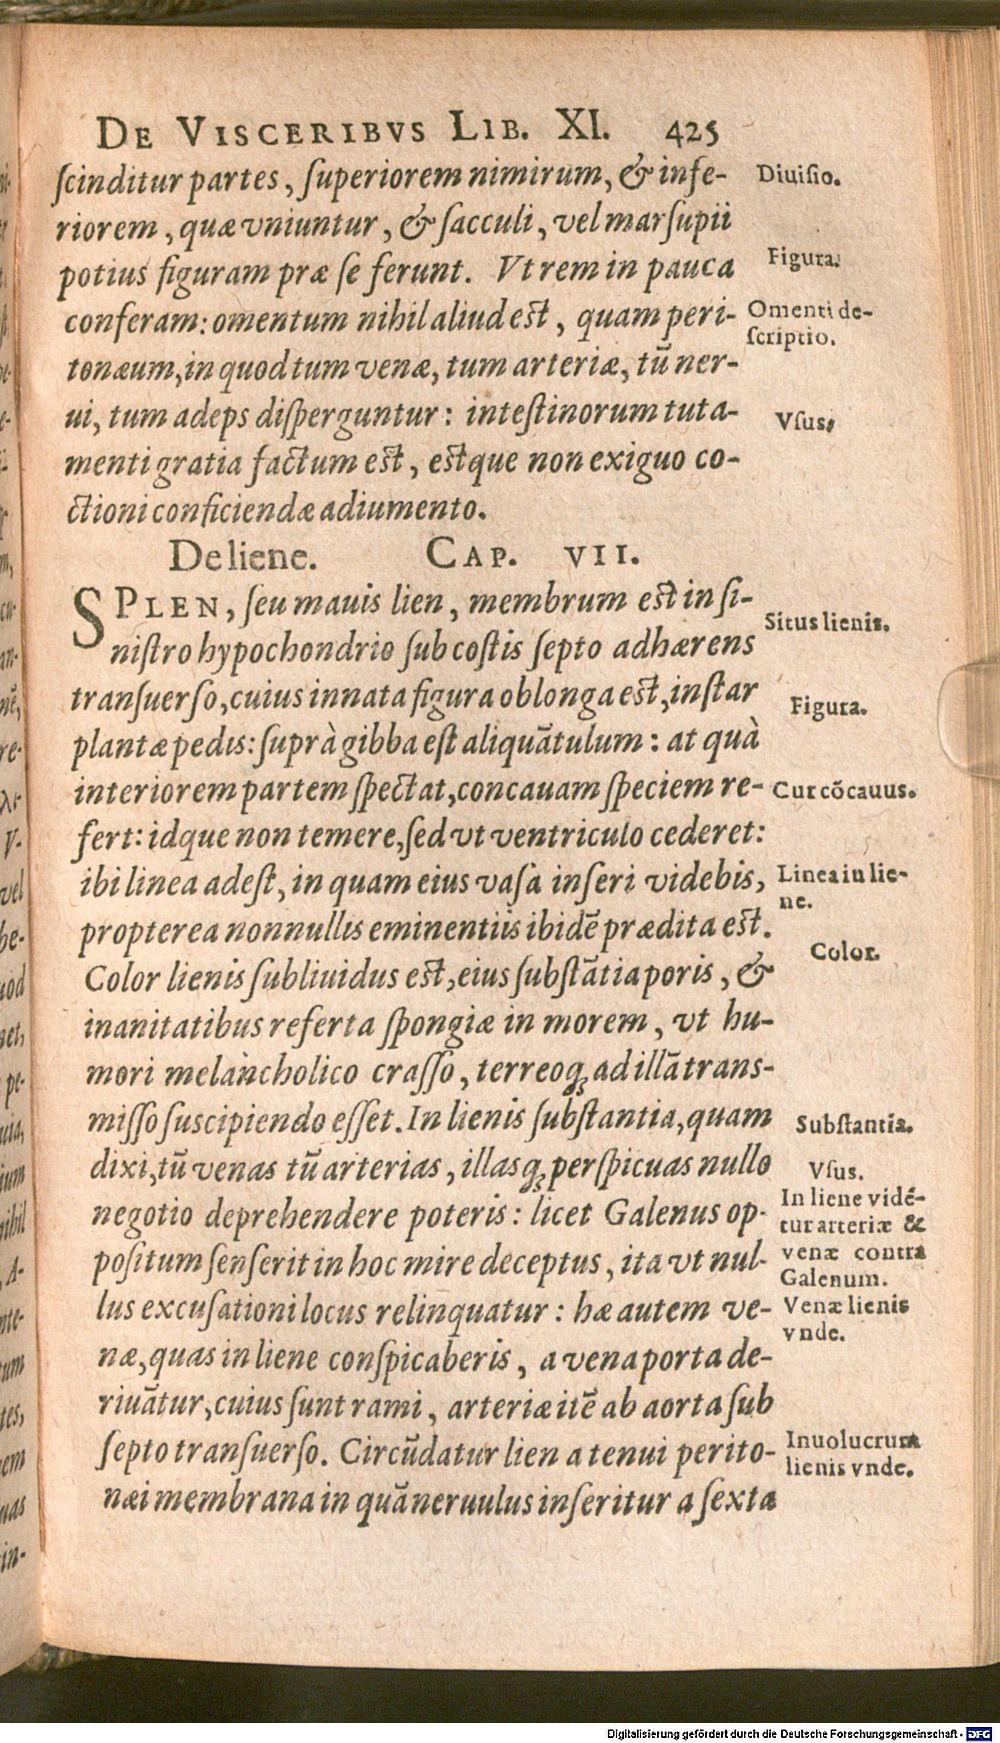 DE VISCERIBVS LIB. XI. 425
ſcinditur partes, ſuperiorem nimirum, & infe-
riorem, quæ vniuntur, & ſacculi, vel marſupii
potius figuram præ ſe ferunt. Vt rem in pauca
conferam: omentum nihil aliud eſt, quam peri-
tonæum, in quod tum venæ, tum arteriæ, tũ ner-
ui, tum adeps diſperguntur: inteſtinorum tuta-
menti gratia factum eſt, eſtque non exiguo co-
ctioni conficiendæ adiumento.
De liene. CAP. VII.
SPLEN, ſeu mauis lien, membrum eſt in ſi-
niſtro hypochondrio ſub coſtis ſepto adhærens
tranſuerſo, cuius innata figura oblonga eſt, inſtar
plantæ pedis: ſuprà gibba eſt aliquãtulum: at quà
interiorem partem ſpectat, concauam ſpeciem re-
fert: idque non temere, ſed vt ventriculo cederet:
ibi linea adeſt, in quam eius vaſa inſeri videbis,
propterea nonnullis eminentiis ibidẽ prædita eſt.
Color lienis ſubliuidus eſt, eius ſubſtãtia poris, &
inanitatibus referta ſpongiæ in morem, vt hu-
mori melancholico craſſo, terreoq; ad illã trans-
miſſo ſuscipiendo eſſet. In lienis ſubſtantia, quam
dixi, tũ venas tũ arterias, illasq; perſpicuas nullo
negotio deprehendere poteris: licet Galenus op-
poſitum ſenſerit in hoc mire deceptus, ita vt nul-
lus excuſationi locus relinquatur: hæ autem ve-
næ, quas in liene conſpicaberis, a vena porta de-
riuãtur, cuius ſunt rami, arteriæ itẽ ab aorta ſub
ſepto tranſuerſo. Circũdatur lien a tenui perito-
næi membrana in quã neruulus inſeritur a ſexta
Diuiſio.
Figura.
Omenti de-
ſcriptio.
Vſus.
Situs lienis.
Figura.
Cur cõcauus.
Linea in lie-
ne.
Color.
Subſtantia.
Vſus.
In liene vidẽ-
tur arteriæ &
venæ contra
Galenum.
Venæ lienis
vnde.
Inuolucrum
lienis vnde.
Digitalisierung gefördert durch die Deutsche Forschungsgemeinschaft - DFG